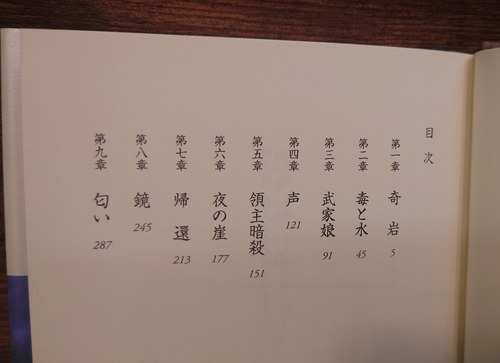 目次
第一章 奇岩 5
第二章 毒と水 45
第三章 武家娘 91
第四章 声 121
第五章 領主暗殺 151
第六章 夜の崖 177
第七章 帰還 213
第八章 鏡 245
第九章 匂い 287